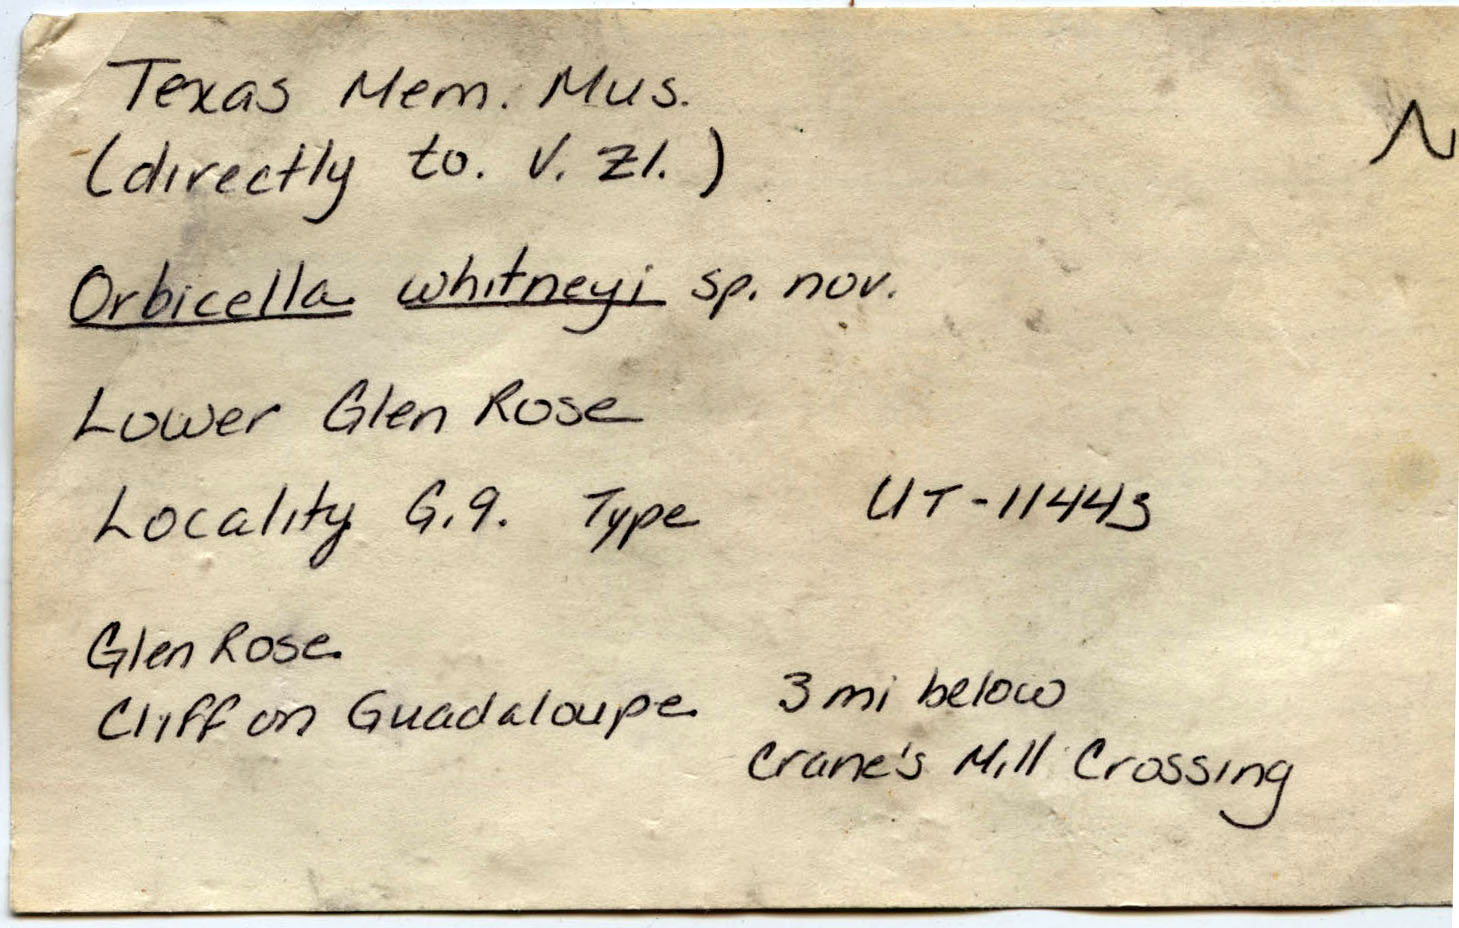 Texas Mem. Mus.
(directly to. V. Zl.)
Orbicella whitneyi sp. nov.
Lower Glen Rose
Locality G.9. Type UT-11443
Glen Rose
Cliff on Guadaloupe 3 mi below
Crane's Mill Crossing